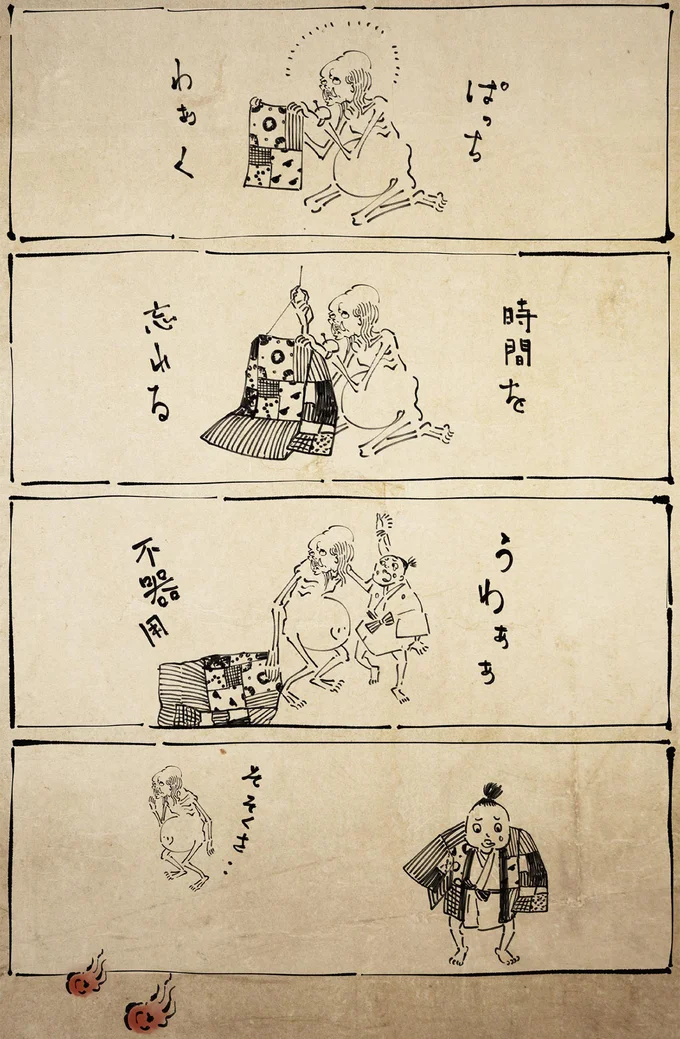 ぱっち
わあく
時間を
忘れる
うわぁぁ
不器用
そそくさ‥